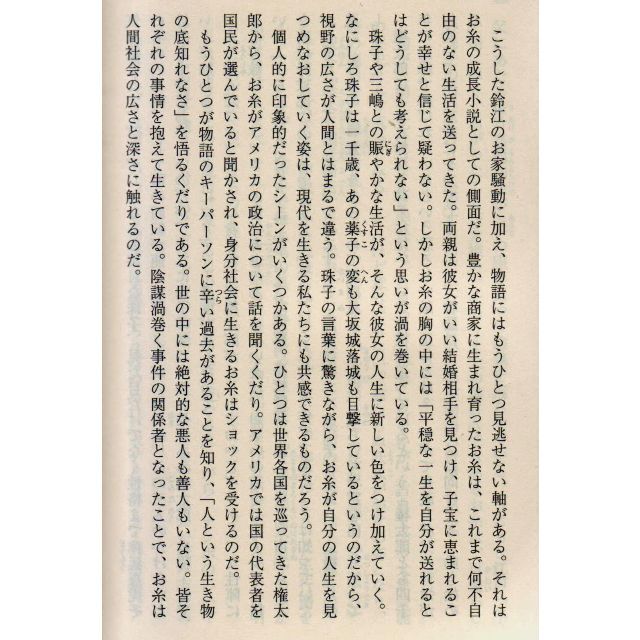 こうした鈴江のお家騒動に加え、物語にはもうひとつ見逃せない軸がある。それは
お糸の成長小説としての側面だ。豊かな商家に生まれ育ったお糸は、これまで何不自
由のない生活を送ってきた。両親は彼女がいい結婚相手を見つけ、子宝に恵まれるこ
とが幸せと信じて疑わない。しかしお糸の胸の中には「平穏な一生を自分が送れると
はどうしても考えられない」という思いが渦を巻いている。
珠子や三嶋との賑やかな生活が、そんな彼女の人生に新しい色をつけ加えていく。
なにしろ珠子は一千歳、あの薬子の変も大坂城落城も目撃しているというのだから、
視野の広さが人間とはまるで違う。珠子の言葉に驚きながら、お糸が自分の人生を見
つめなおしていく姿は、現代を生きる私たちにも共感できるものだろう。
個人的に印象的だったシーンがいくつかある。ひとつは世界各国を巡ってきた権太
郎から、お糸がアメリカの政治について話を聞くくだり。アメリカでは国の代表者を
国民が選んでいると聞かされ、身分社会に生きるお糸はショックを受けるのだ。
もうひとつが物語のキーパーソンに辛い過去があることを知り、「人という生き物
の底知れなさ」を悟るくだりである。世の中には絶対的な悪人も善人もいない。皆そ
れぞれの事情を抱えて生きている。陰謀渦巻く事件の関係者となったことで、お糸は
人間社会の広さと深さに触れるのだ。